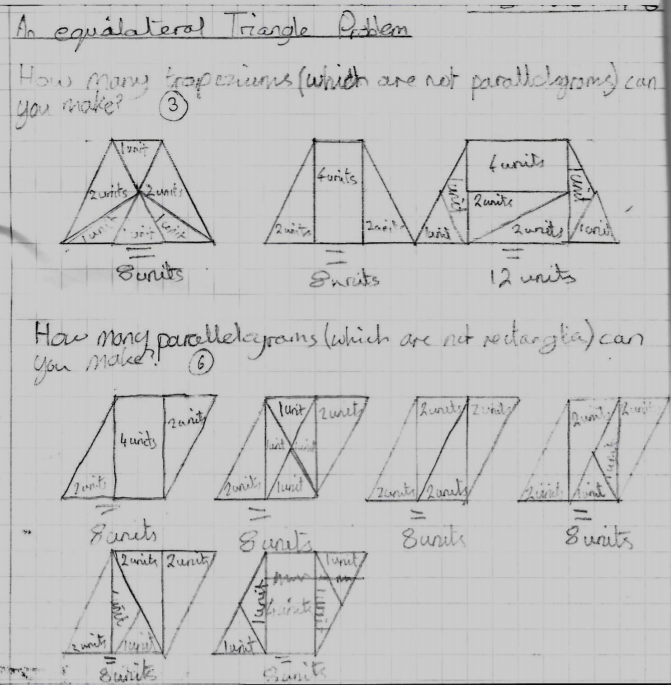 An equalateral Triangle Problem
How many trapeziums (which are not parallelograms) can
you make? 3
1 unit 4 units 4 units
2 units 2 units 1 unit 1 unit
2 units
1 unit 1 unit 1 unit 2 units 2 units 1 unit 2 units 1 unit
= = =
8 units 8 units 12 units
How many parallelograms (which are not rectangles) can
you make? 6
2 units 1 unit 2 units 2 units 2 units 2 units 2 unit
4 units 1 unit 1 unit 1 unit
2 units 2 units 1 unit 2 units 2 units 2 units 1 unit
= = = =
8 units 8 units 8 units 8 units
2 units 2 units 1 unit
1 unit 1 unit 4 units 1 unit
2 units 1 unit 1 unit
= =
8 units 8 units